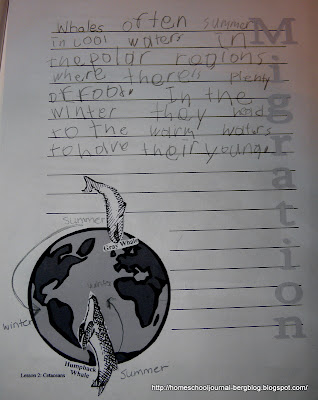 Whales often summer
in cool waters in
the polar regions
where there is plenty
of food. In the
winter they head
to the warm waters
to have their young.
Migration
Summer
Gray Whale
winter
winter
Humpback
Whale
Summer
Lesson 2: Cetaceans
http://homeschooljournal-bergblog.blogspot.com/